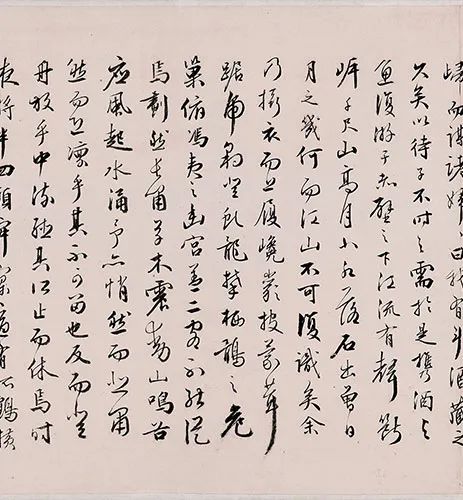 歸而謀諸婦〻曰我有斗酒藏之
久矣以待子不時之需於是攜酒与
魚復游于赤壁之下江流有聲斷
岸千尺山高月小水落石出曾日
月之幾何而江山不可復識矣余
乃攝衣而上履巉巖披蒙茸
踞虎豹登虬龍攀栖鶻之危
巢俯馮夷之幽宮蓋二客不能從
焉劃然長嘯草木震動山鳴谷
應風起水涌予亦悄然而悲肅
然而恐凜乎其不可留也反而登
舟放乎中流聽其所止而休焉時
夜將半四顧寂寥適有孤鶴橫